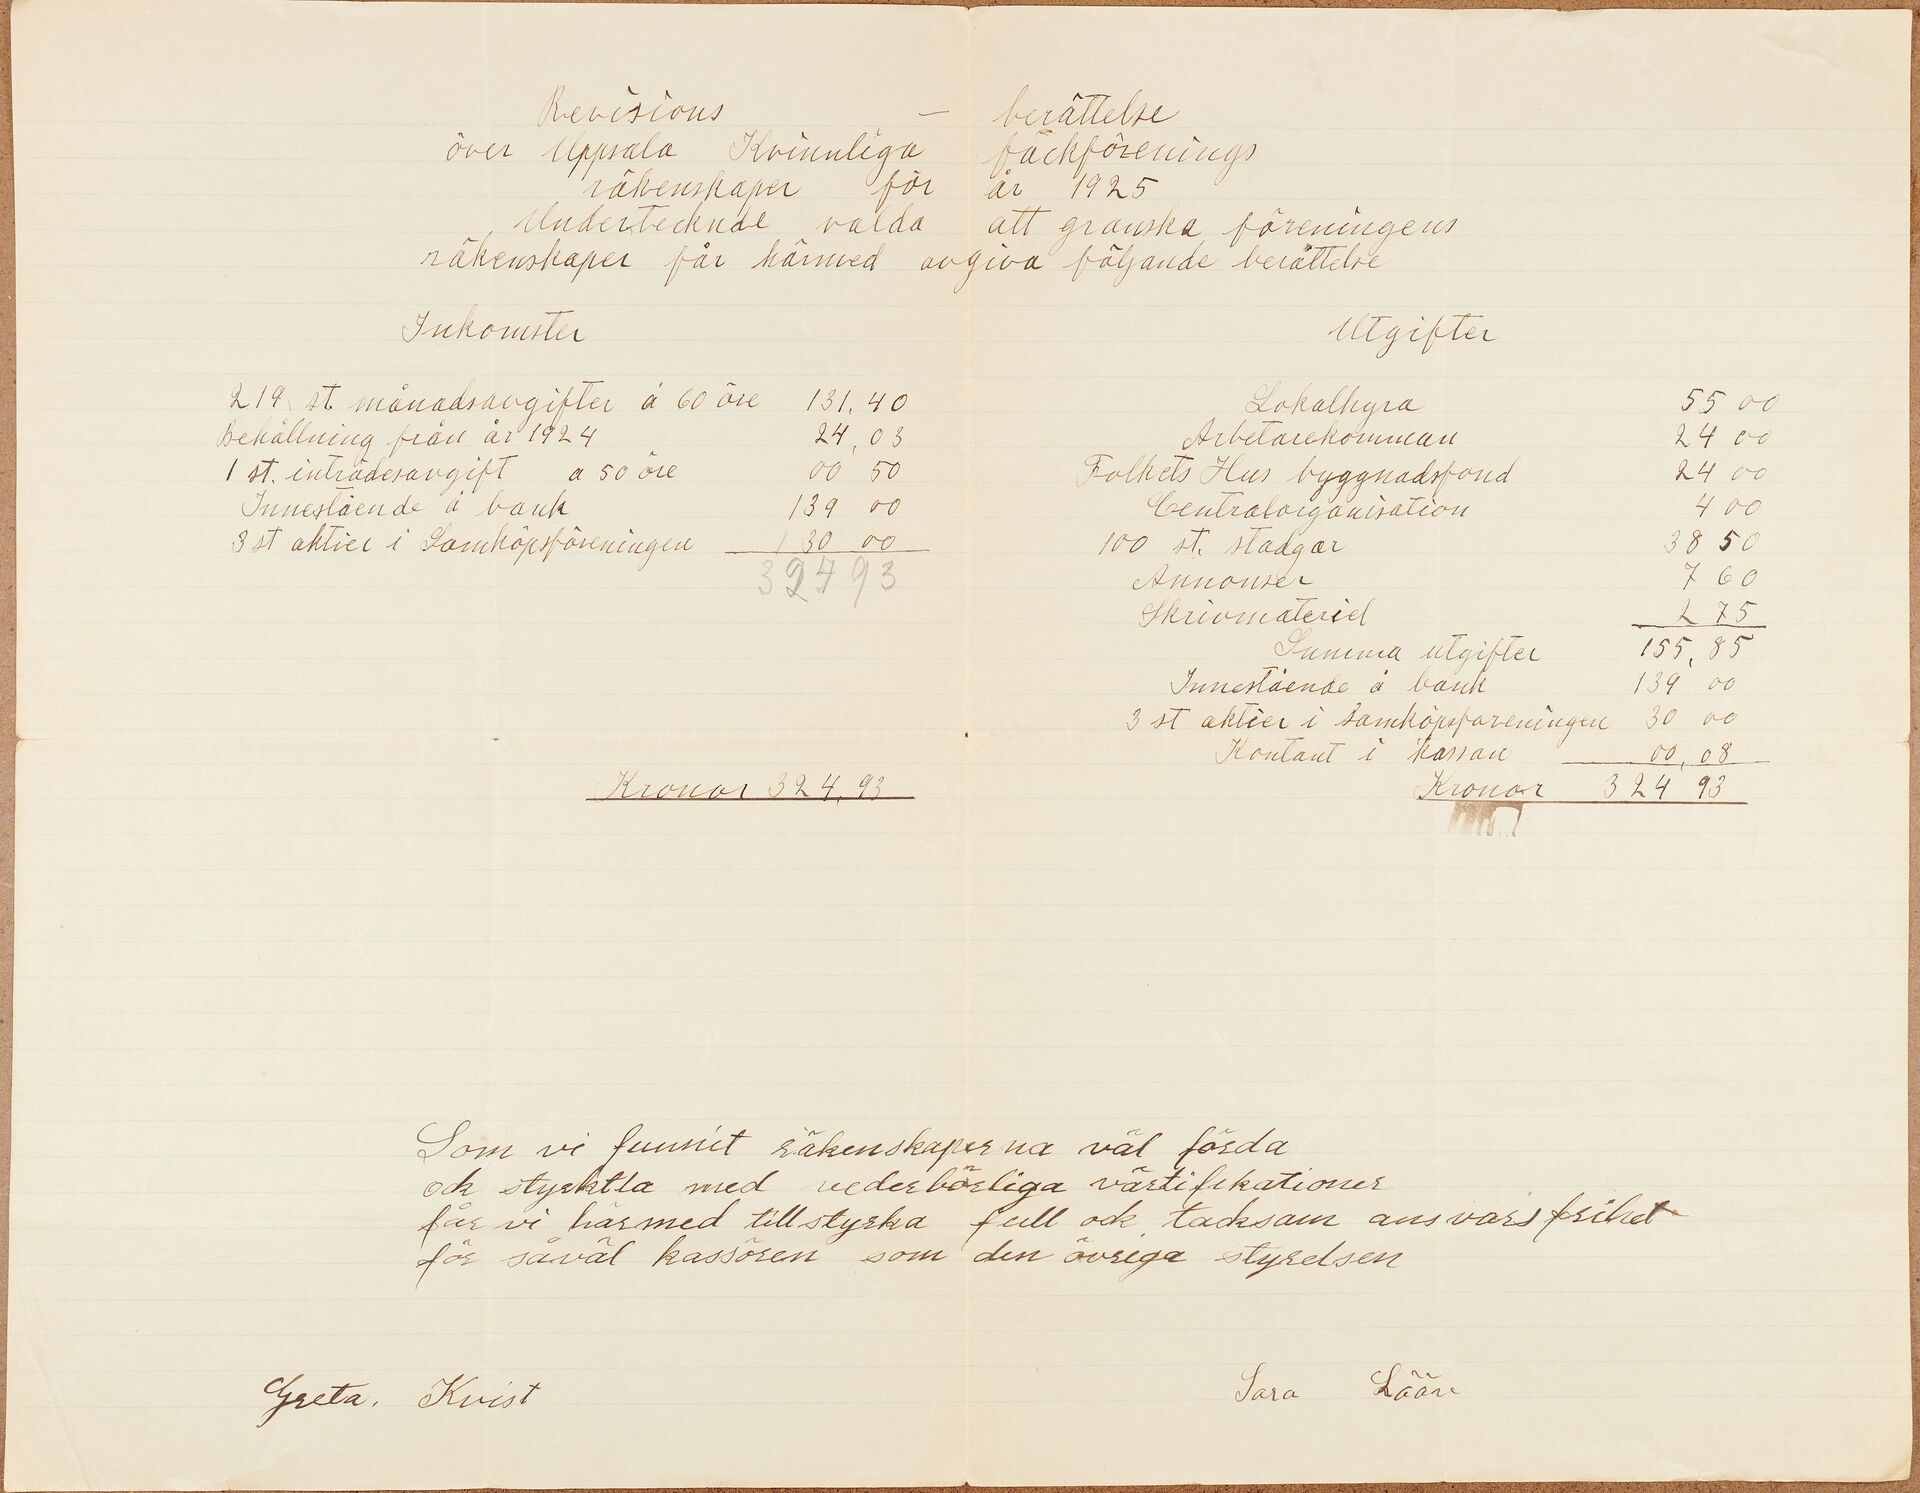 Revisions — berättelse
över Uppsala Kvinnliga fackförenings
räkenskaper för år 1925
Undertecknde valda att granska föreningens
räkenskaper får härmed avgiva följande berättelse
Inkomster
219 st. månadsavgifter á 60 öre 131,40
Behållning från år 1924 24,03
1 st. inträdesavgift a 50 öre 00 50
Innestående å bank 139 00
3 st aktier i Samköpsföreningen 30 00
324 93
Kronor 324,93
Utgifter
Lokalhyra 55 00
Arbetarekommun 24 00
Folkets Hus byggnadsfond 24 00
Centralorganisation 4 00
100 st. stadgar 38 50
Annonser 7 60
Skrivmateriel 2 75
Summa utgifter 155,85
Innestående å bank 139 00
3 st aktier i Samköpsföreningen 30 00
Kontant i kassan 00,08
Kronor 324 93
Som vi funnit räkenskaperna väl förda
ock styrktta med vederbörliga värtifikationer
får vi härmed tillstyrka full ock tacksam ansvarsfrihet
för såväl kassören som den övriga styrelsen
Greta. Kvist
Sara Lööw